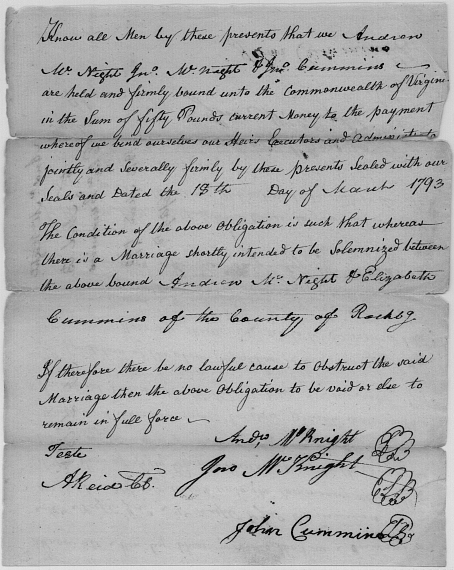 Know all Men by these presents that we Andrew
Mc Night Jno. Mc Night & Jno. Cummins
are held and firmly bound unto the Commonwealth of Virginia
in the Sum of fifty Pounds current Money to the payment
whereof we bend ourselves our Heirs Executors and administrato
jointly and Severally firmly by these presents Sealed with our
Seals and Dated the 13th Day of March 1793
The Condition of the above Obligation is such that whereas
there is a Marriage shortly intended to be Solemnized between
the above bound Andrew Mc Night & Elizabeth
Cummins of the County of Rockbg
If therefore there be no lawful cause to obstruct the said
Marriage then the above Obligation to be void or else to
remain in full force
Andw McKnight
Teste
Jno McKnight
A Reid
John Cummins